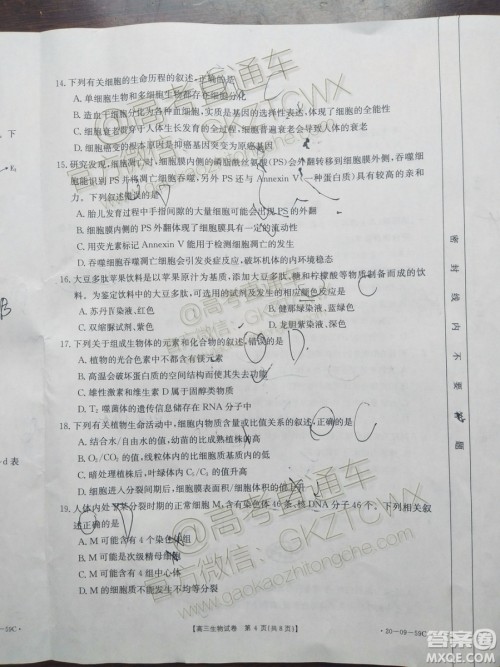 14. 下列有关细胞的生命历程的叙述,正确的是
A. 单细胞生物和多细胞生物都存在细胞分化
B. 造血干细胞分化为各种血细胞,实质是基因的选择性表达,体现了细胞的全能性
C. 衰老发生在人体发育的全过程,细胞普遍衰老会导致人体的衰老
D. 细胞癌变的根本原因是原癌基因突变成癌基因
15. 研究发现,细胞凋亡时,细胞膜内侧的磷脂酰丝氨酸(PS)会外翻转移到细胞膜外侧,吞噬细
胞能识别PS并将凋亡细胞吞噬,另外PS还与Annexin V(一种蛋白质)具有较高的亲和
力。下列叙述错误的是
A. 胎儿发育过程中手指间隙的大量细胞可能会出现PS的外翻
B. PS外翻体现了细胞膜具有一定的流动性
C. 用荧光素标记Annexin V能用于检测细胞凋亡的发生
D. 吞噬细胞吞噬凋亡细胞会引发炎症反应,破坏机体的内环境稳态
16. 大豆多肽苹果饮料是以苹果原汁为基质,添加大豆多肽、糖和柠檬酸等物质制备而成的饮
料。为鉴定饮料中的大豆多肽,可选用的试剂和相应颜色反应是
A. 苏丹Ⅳ染液、红色
B. 健那绿染液、蓝绿色
C. 双缩脲试剂、紫色
D. 龙胆紫染液、深色
17. 下列关于组成生物体的元素和化合物的叙述,错误的是
A. 植物的光合色素中不都含有镁元素
B. 高温会破坏蛋白质的空间结构而使其变性
C. 雄性激素和维生素D属于固醇类物质
D. T₂噬菌体的遗传信息储存在RNA分子中
18. 下列有关植物生命活动中,细胞内物质含量或比值关系的叙述,正确的是
A. 结合水/自由水的值,幼苗的比成熟植株的高
B. O₂/CO₂的值,线粒体内的比细胞质基质的低
C. 停止对植株光照后,叶绿体内C₃/C₅的值升高
D. 细胞进入分裂间期后,细胞表面积/体积的值上升
19. 人体内处于某分裂时期的正常细胞M,含有染色体46条、核DNA分子46个。下列相关叙
述正确的是
A. M可能含有4个染色体组
B. M可能为次级精母细胞
C. M可能含有4组中心体
D. M可能是
【高三生物试卷 第4页(共8页)】
·20-09-59C·
密封线内不要答题
-59C·
-d表
下
B
C
D.
C
D
@高考直通车
官方微信:GKZTCWX
www.gaokaozhitongche.com
答案圈